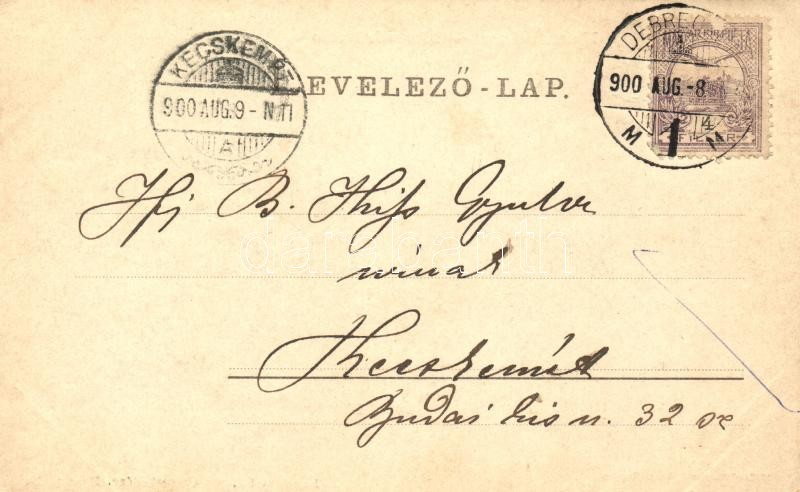 KECSKEMÉT
900 AUG. 9 - N 11
A
LEVELEZŐ-LAP.
DEBRECZ
900 AUG. - 8
M 1
4
Ifj B. Kiss Gyula
urnak
Kecskemét
Budai kis u. 32 sz
darabanth